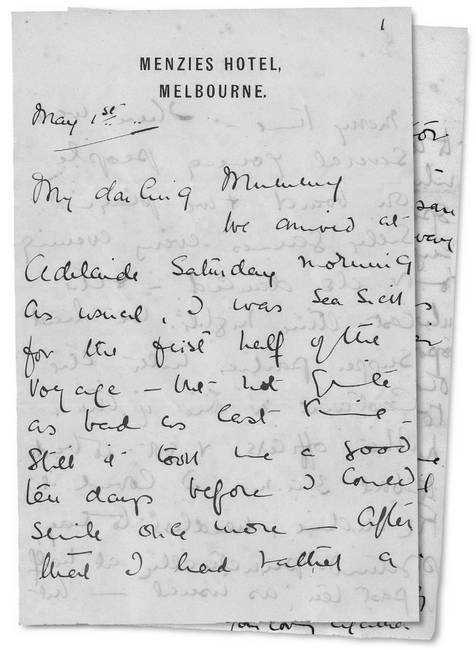 1
MENZIES HOTEL,
MELBOURNE.
May 1st.
My darling Mummy
We arrived at
Adelaide Saturday morning
as usual, I was sea sick
for the first half of the
voyage – but not quite
as bad as last time
Still it took me a good
ten days before I could
smile once more – After
that I had rather a